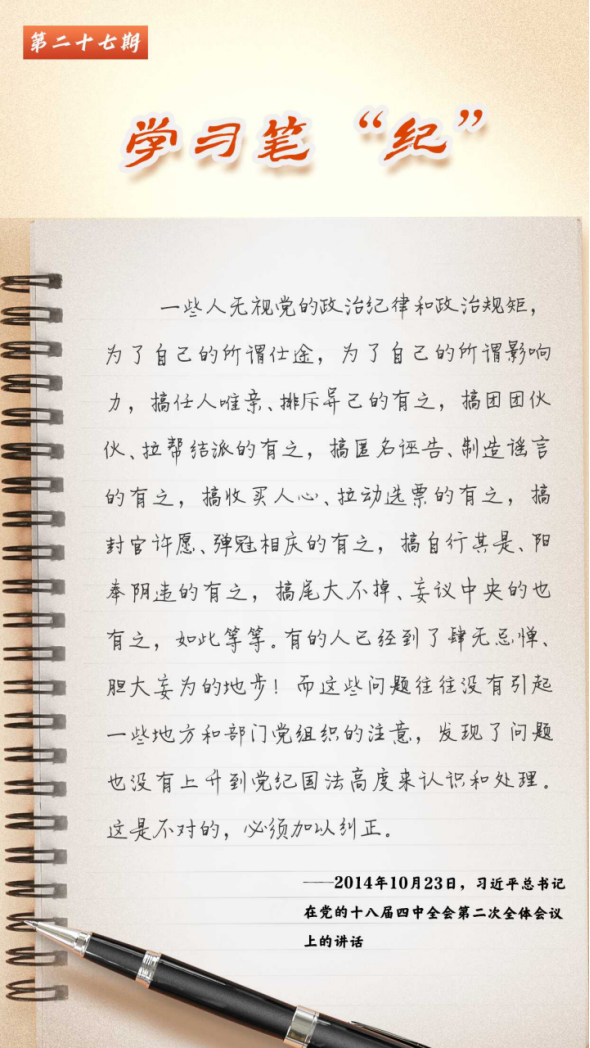 第二十七期
学习笔“纪”
一些人无视党的政治纪律和政治规矩，
为了自己的所谓仕途，为了自己的所谓影响
力，搞任人唯亲、排斥异己的有之，搞团团伙
伙、拉帮结派的有之，搞匿名诬告、制造谣言
的有之，搞收买人心、拉动选票的有之，搞
封官许愿、弹冠相庆的有之，搞自行其是、阳
奉阴违的有之，搞尾大不掉、妄议中央的也
有之，如此等等。有的人已经到了肆无忌惮、
胆大妄为的地步！而这些问题往往没有引起
一些地方和部门党组织的注意，发现了问题
也没有上升到党纪国法高度来认识和处理。
这是不对的，必须加以纠正。
——2014年10月23日，习近平总书记
在党的十八届四中全会第二次全体会议
上的讲话